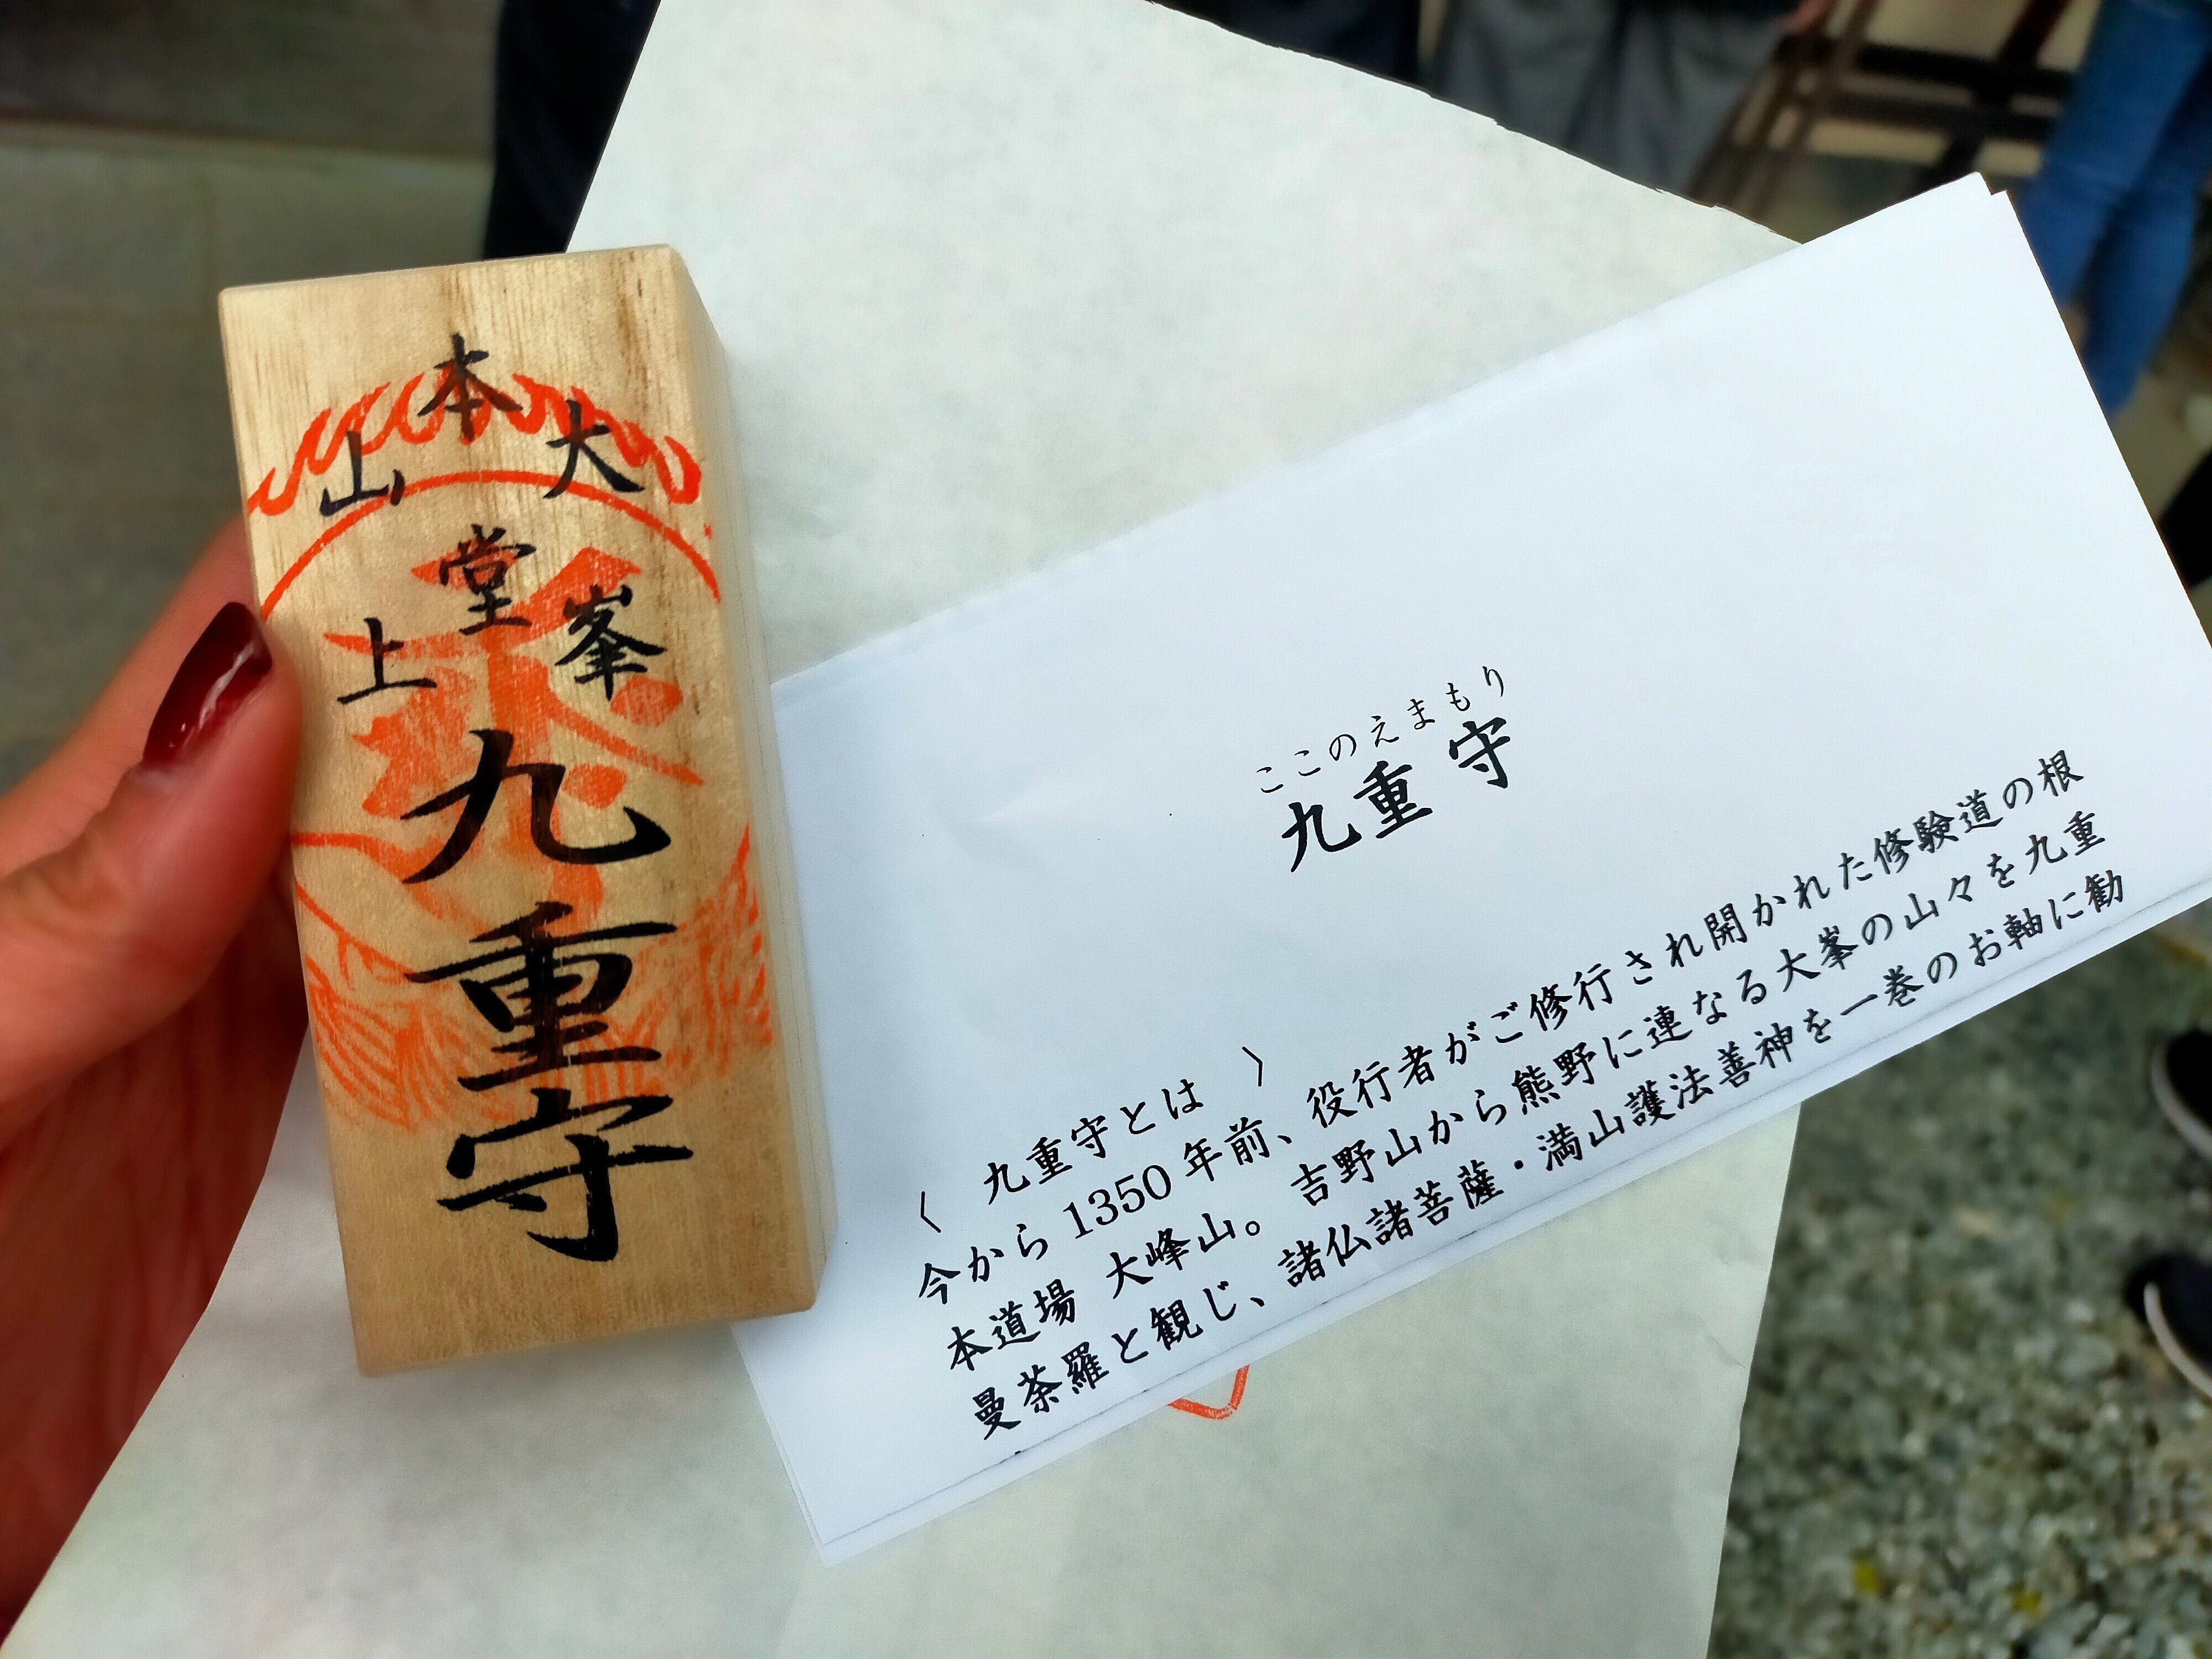 大峯
本堂
山上
九重守
ここのえまもり
九重守
〈 九重守とは 〉
今から1350年前、役行者がご修行され開かれた修験道の根
本道場 大峰山。吉野山から熊野に連なる大峯の山々を九重
曼荼羅と観じ、諸仏諸菩薩・満山護法善神を一巻のお軸に勧